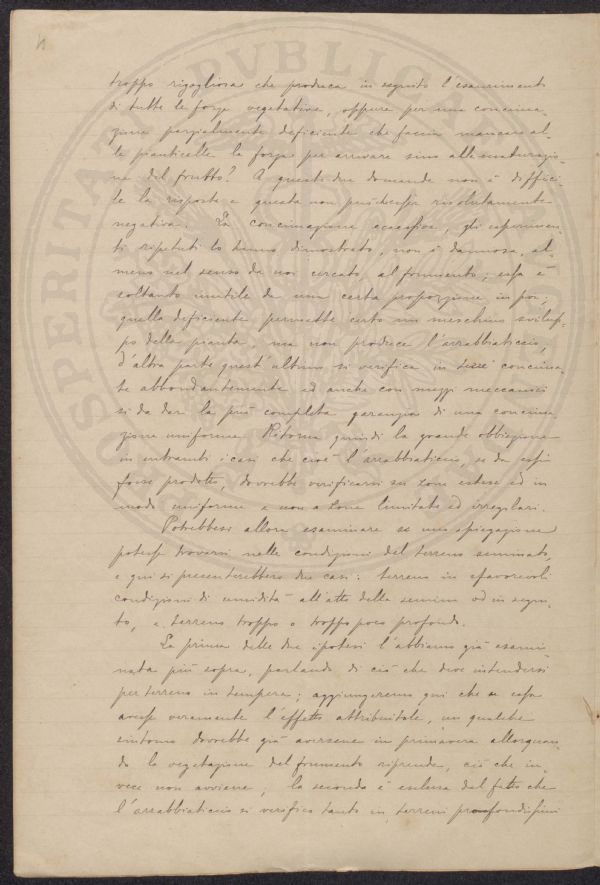 troppo rigogliosa che produca in seguito l'esaurimento
di tutte le forze vegetative, oppure per una concima-
zione parzialmente deficiente che faccia mancare al-
le pianticelle la forza per arrivare sino alla maturazio-
ne del frutto? A queste due domande non è diffici-
le la risposta e questa non può che essere risolutamente
negativa. La concimazione eccessiva, gli esperimen-
ti ripetuti lo hanno dimostrato, non è dannosa, al-
meno nel senso da noi cercato, al frumento; essa è
soltanto inutile da una certa proporzione in poi;
quella deficiente permette certo un meschino svilup-
po della pianta, ma non produce l'arrabbiaticcio;
d'altra parte quest'ultimo si verifica in terre concima-
te abbondantemente ed anche con mezzi meccanici
sì da dar la più completa garanzia di una concima-
zione uniforme. Ritorna quindi la grande obbiezione
in entrambi i casi che cioè l'arrabbiaticcio, se da essi
fosse prodotto, dovrebbe verificarsi su zone estese ed in
modo uniforme e non a zone limitate ed irregolari.
Potrebbesi allora esaminare se una spiegazione
potesse trovarsi nelle condizioni del terreno seminato,
e qui si presenterebbero due casi: terreno in sfavorevoli
condizioni di umidità all'atto della semina od in segui-
to, e terreno troppo o troppo poco profondo.
La prima delle due ipotesi l'abbiamo già esami-
nata più sopra, parlando di ciò che deve intendersi
per terreno in tempera; aggiungeremo qui che se essa
avesse veramente l'effetto attribuitole, un qualche
sintomo dovrebbe già aversene in primavera allorquan-
do la vegetazione del frumento riprende, ciò che in-
vece non avviene; la seconda è esclusa dal fatto che
l'arrabbiaticcio si verifica tanto in terreni profondissimi